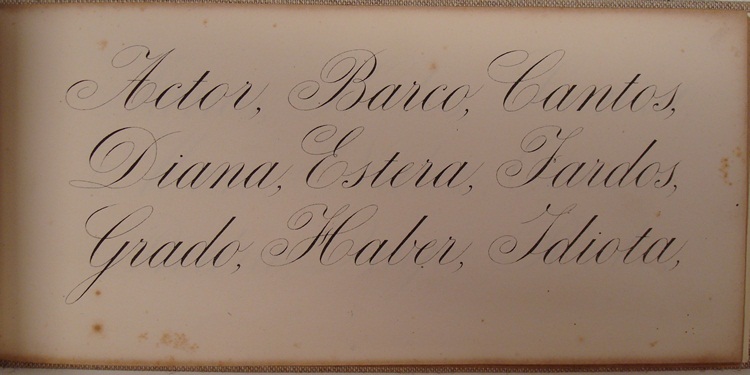 Actor, Barco, Cantos,
Diana, Estera, Fardos,
Grado, Haber, Idiota,